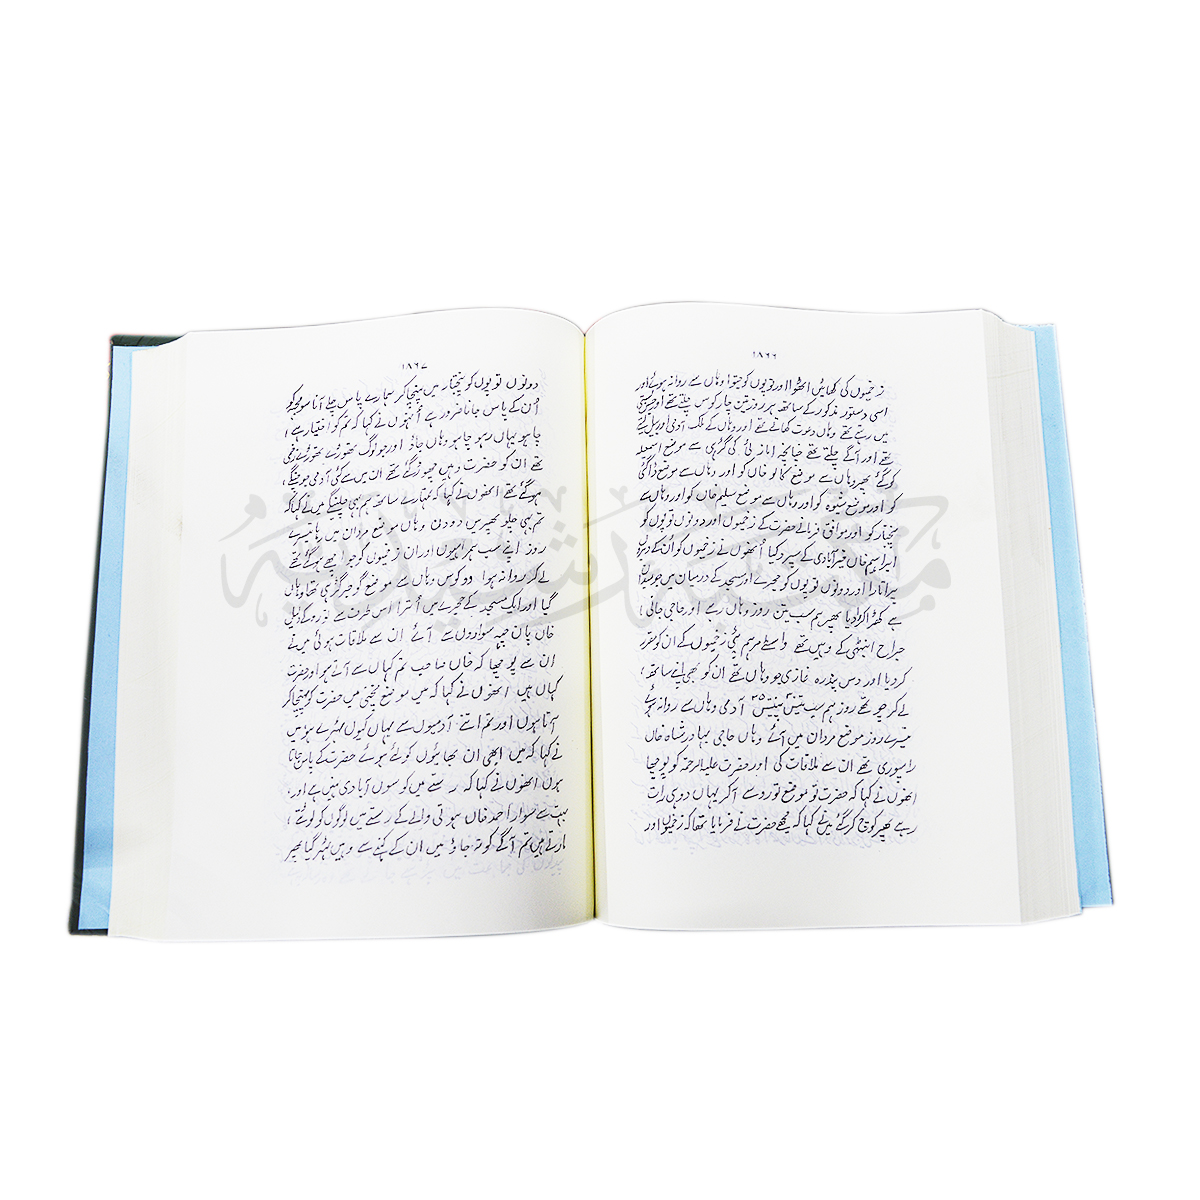 ۱۸۶۶
زخمیوں کی کھاٹیں اٹھوا اور توپوں کو جتوا وہاں سے روانہ ہوئے اور
اسی دستور مذکور کے ساتھ ہر روز تین چار کوس چلتے تھے اور جس بستی
میں رہتے تھے وہاں دعوت کھاتے تھے اور وہاں کے ملک آدمی اور بیل لیتے
تھے اور آگے چلتے تھے چنانچہ امازئی کی گڑہی سے موضع اسمیلہ
کو گئے پھر وہاں سے موضع کالو خاں کو اور وہاں سے موضع ڈاگئی
کو اور موضع شیوہ کو اور وہاں سے موضع سلیم خاں کو اور وہاں سے
پنجتار کو اور موافق فرمانے حضرت کے زخمیوں اور دونوں توپوں کو
ابراہیم خاں خیرآبادی کے سپرد کیا اُنھوں نے زخمیوں کو ان کے ڈیروں
پر اتارا اور دونوں توپوں کو حجرے اور مسجد کے درمیان میں جو میدان
ہے کھڑا کرا دیا پھر ہم سب تین روز وہاں رہے اور حاجی جانی
جراح انبیٹھی کے وہیں تھے واسطے مرہم پٹی زخمیوں کے ان کو مقرر
کر دیا اور دس پندرہ غازی جو وہاں تھے ان کو بھی اپنے ساتھ
لے کر چوتھے روز ہم سب پینتیس ۳۵ آدمی وہاں سے روانہ ہوئے
تیسرے روز موضع مردان میں آئے وہاں حاجی بہادر شاہ خاں
رامپوری تھے ان سے ملاقات کی اور حضرت علیہ الرحمۃ کو پوچھا
انھوں نے کہا کہ حضرت تو موضع تورو سے آکر یہاں دو ہی رات
رہے پھر کوچ کر گئے میں نے کہا کہ مجھے حضرت نے فرمایا تھا کہ زخمیوں اور
۱۸۶۷
دونوں توپوں کو پنجتار میں پہنچا کر ہمارے پاس چلے آنا سو مجھ کو
اُن کے پاس جانا ضرور ہے اُنہوں نے کہا کہ تم کو اختیار ہے
چاہو یہاں رہو چاہو وہاں جاؤ اور جو لوگ تھوڑے تھوڑے زخمی
تھے ان کو حضرت وہیں چھوڑ گئے تھے ان میں سے کئی آدمی جو چنگے
ہو گئے تھے انھوں نے کہا کہ تمہارے ساتھ ہم بھی چلینگے میں نے کہا کہ
تم بھی چلو پھر میں دو دن وہاں موضع مردان میں رہا تیسرے
روز اپنے سب ہمراہیوں اور ان زخمیوں کو جو اچھے ہو گئے تھے
لے کر روانہ ہوا دو کوس وہاں سے موضع گوجر گڑہی تھا وہاں
گیا اور ایک مسجد کے حجرے میں اُترا اس طرف سے تورو کے دلیل
خاں پان چھہ سواروں سے آئے ان سے ملاقات ہوئی میں نے
ان سے پوچھا کہ خاں صاحب تم کہاں سے آتے ہو اور حضرت
کہاں ہیں انھوں نے کہا کہ میں موضع لنخئی میں حضرت کو پہنچا کر
آتا ہوں اور تم اتنے آدمیوں سے یہاں کیوں ٹھہرے ہو میں
نے کہا کہ میں ابھی ان بھائیوں کو لئے ہوئے حضرت کے پاس جاتا
ہوں انھوں نے کہا کہ رستے میں کوسوں آبادی نہیں ہے اور
بہت سے سوار احمد خاں ہوتی والے کے رستے میں لوگوں کو لوٹتے
مارتے ہیں تم آگے کو نہ جاؤ میں ان کے کہنے سے وہیں ٹہر گیا پھر
مکتبہ رشیدیہ